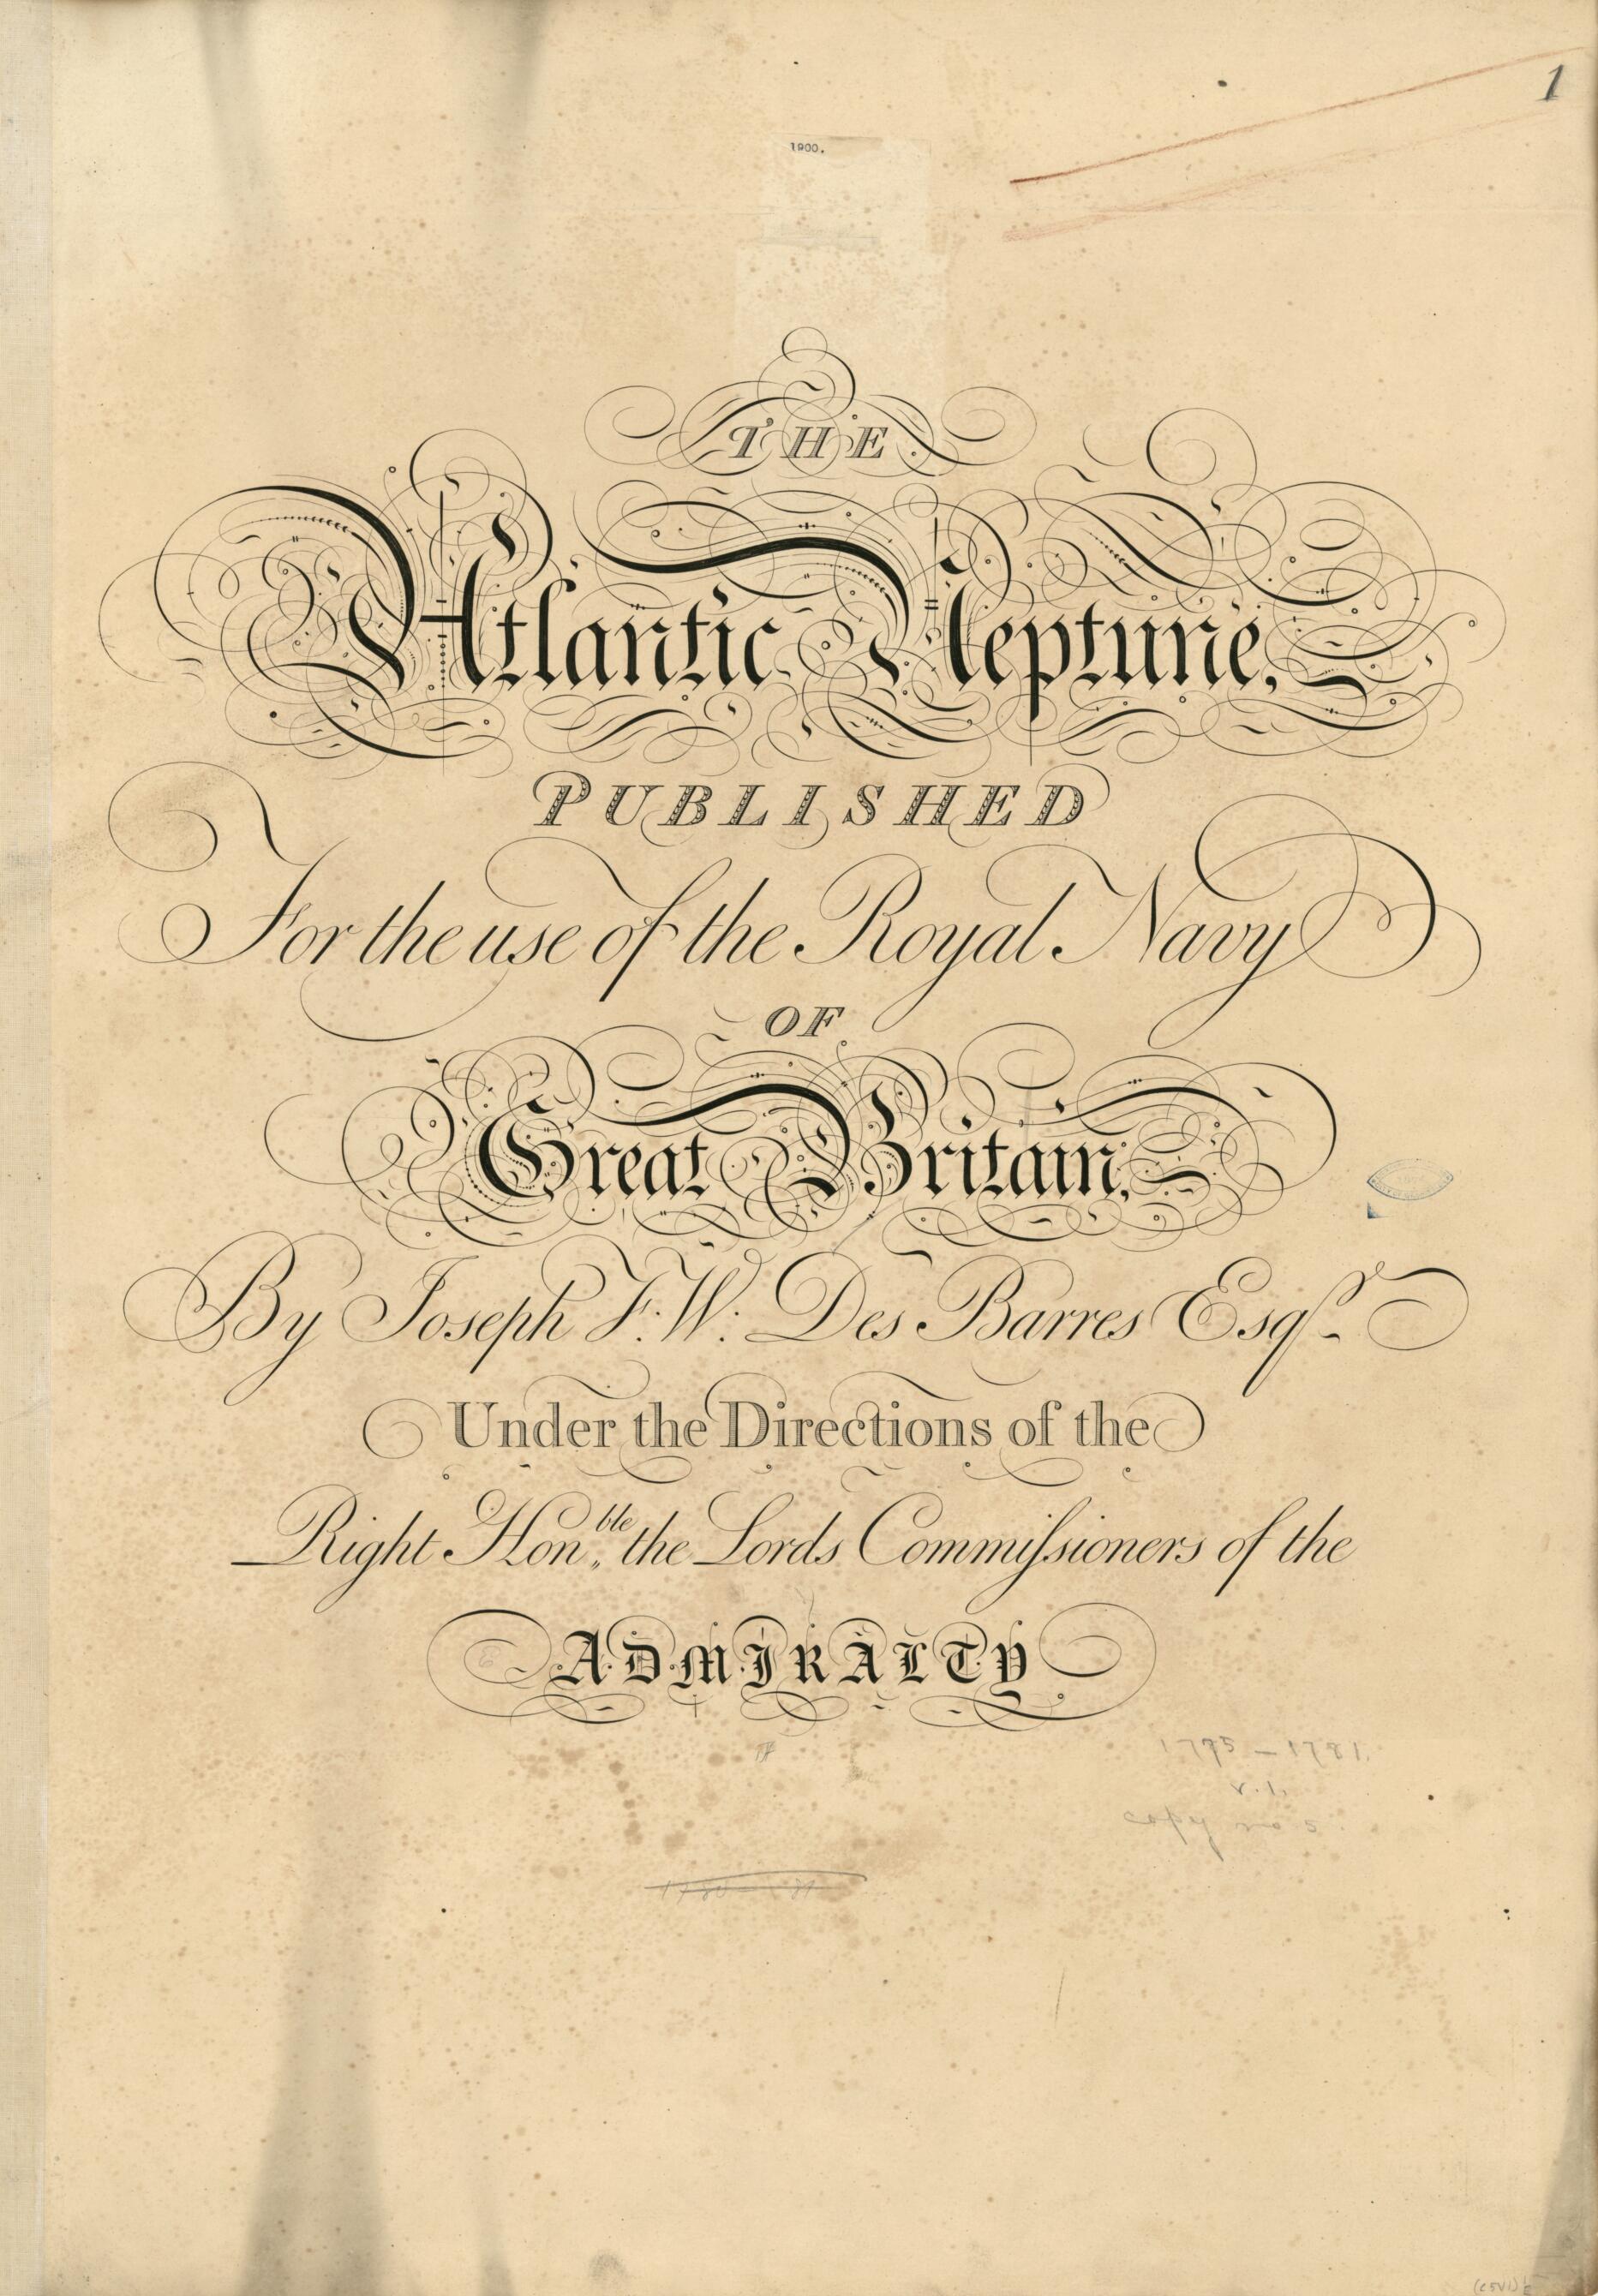 1
1900.
THE
Atlantic Neptune,
PUBLISHED
For the use of the Royal Navy
OF
Great Britain,
By Joseph F. W. Des Barres Esqr.
Under the Directions of the
Right Honble. the Lords Commiſsioners of the
ADMIRALTY
- 1781.
v. 1.
copy no